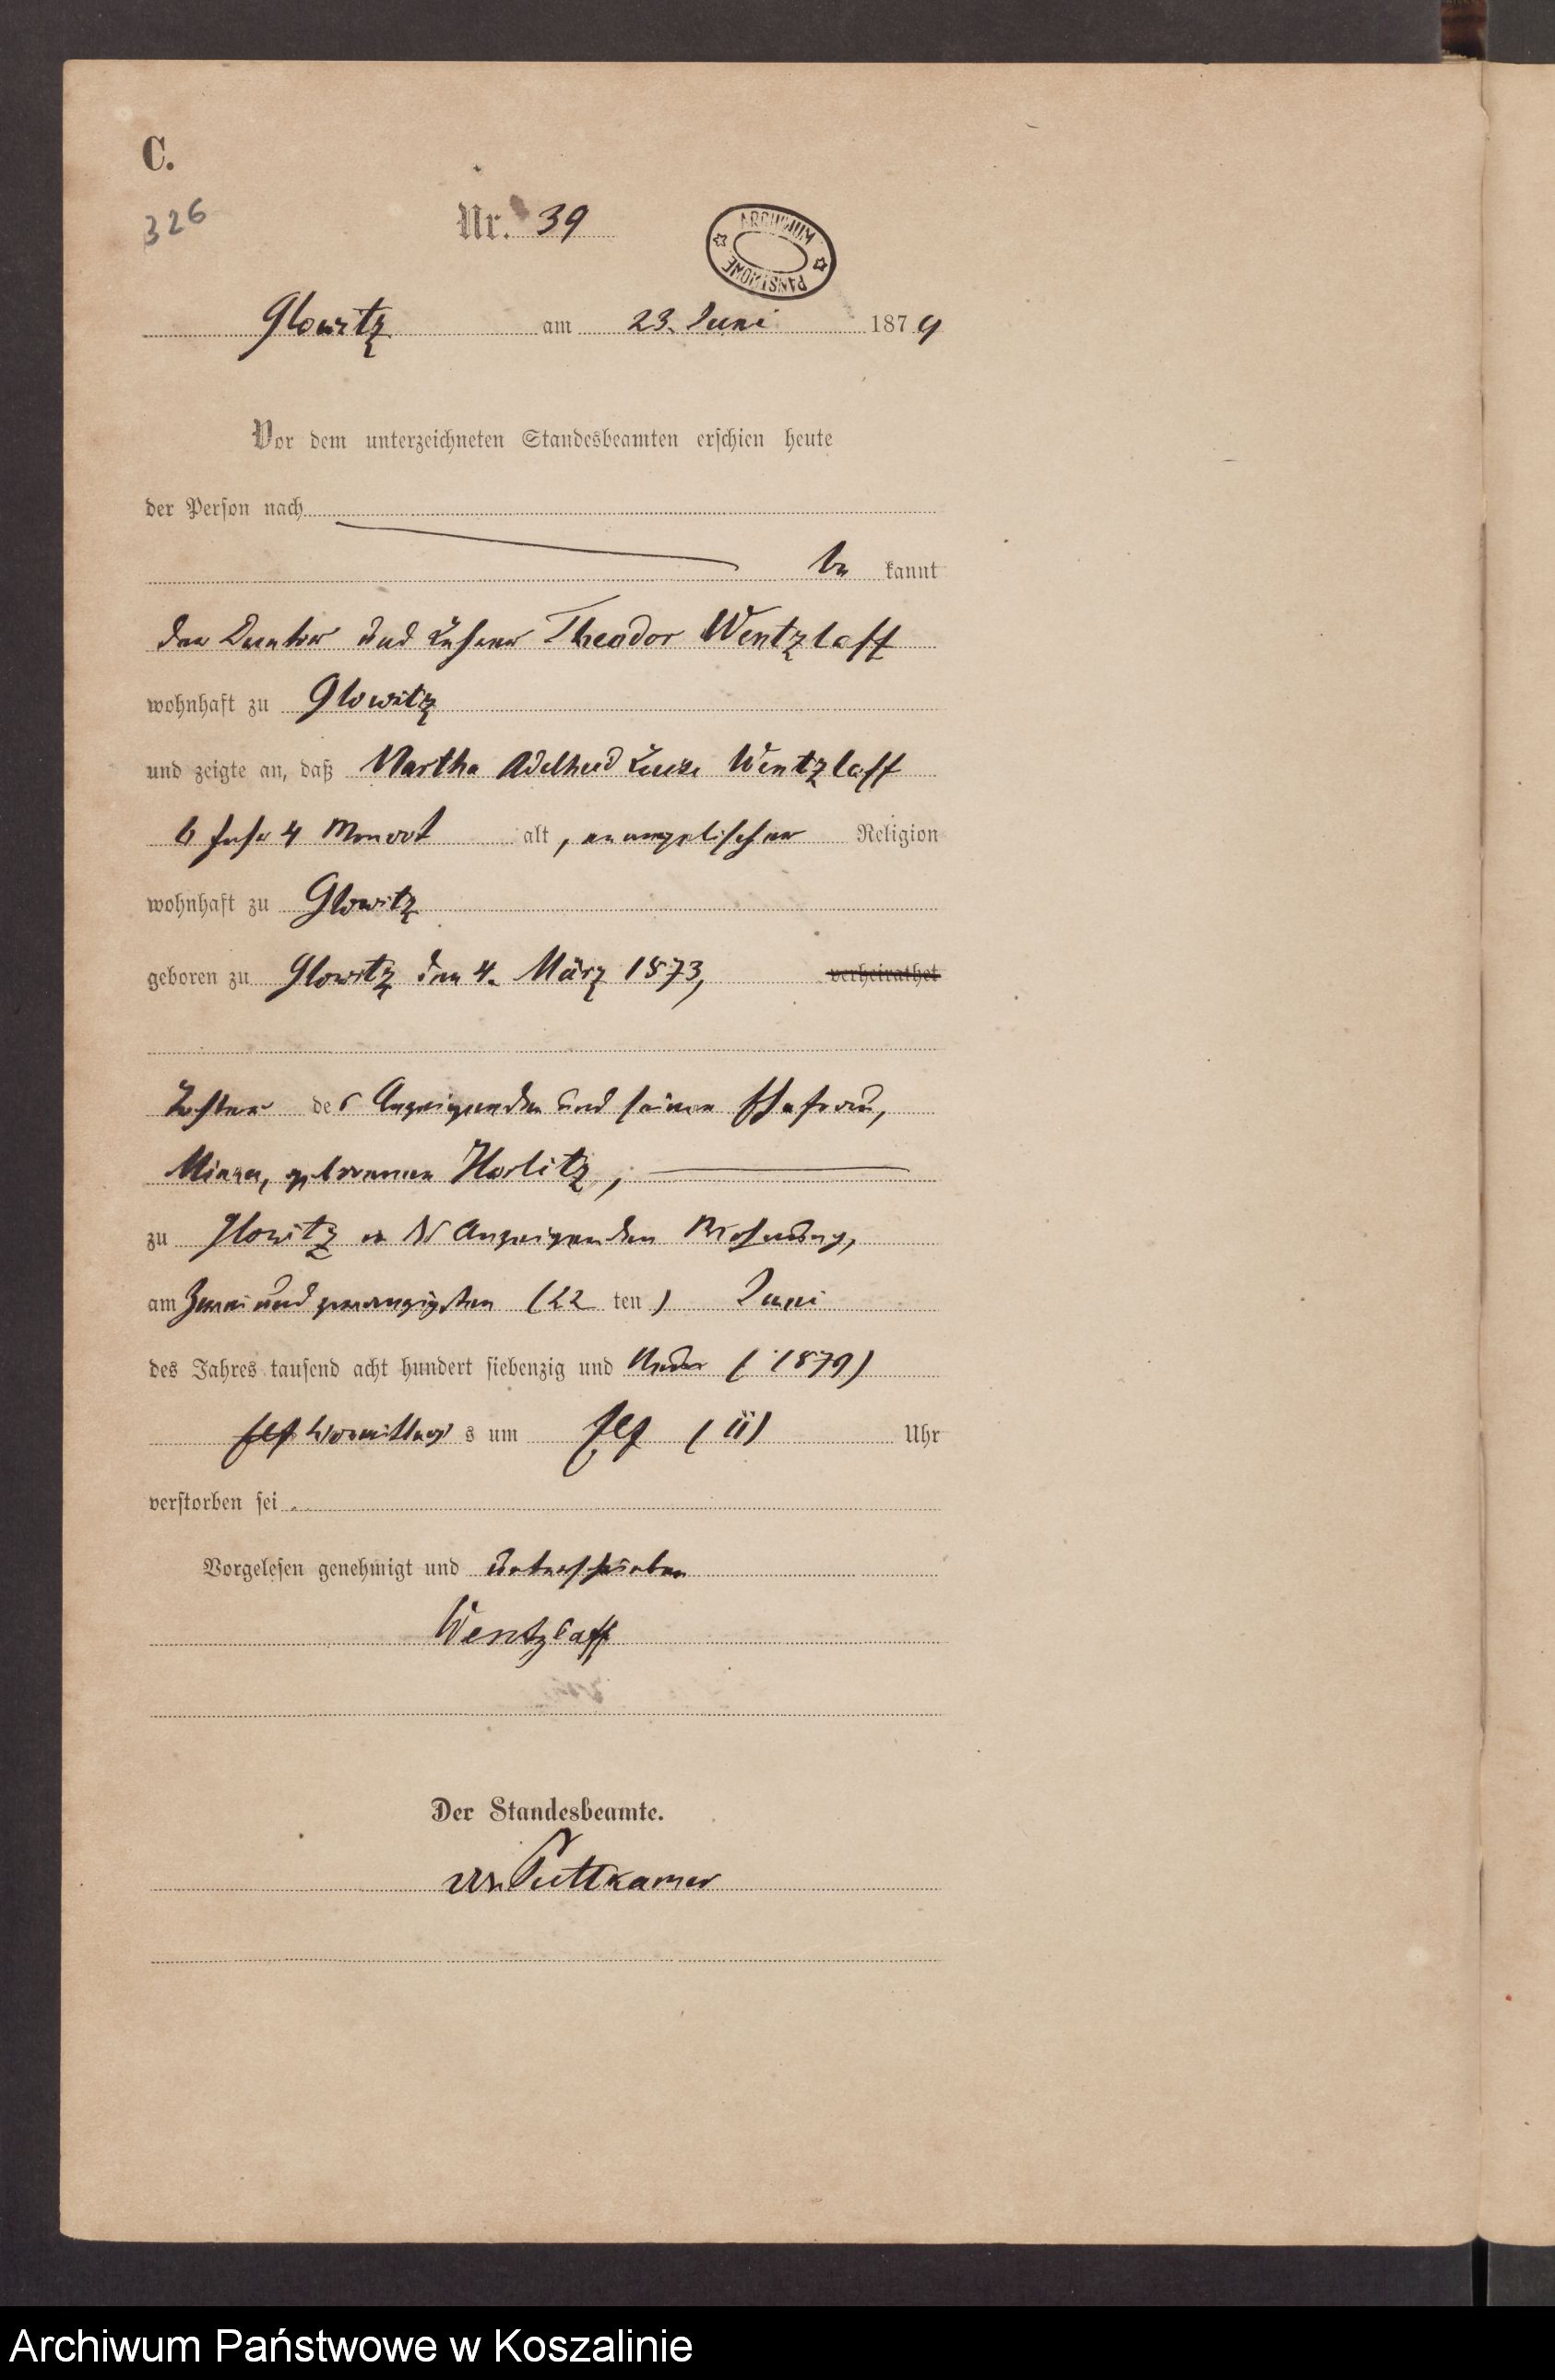 C.
326
Nr. 39
ARCHIWUM PAŃSTWOWE
Glowitz am 23. Juni 1879
Vor dem unterzeichneten Standesbeamten erschien heute
der Person nach
be kannt
der Cantor und Lehrer Theodor Wentzlaff
wohnhaft zu Glowitz
und zeigte an, daß Martha Adelheid Luise Wentzlaff
6 Jahr 4 Monat alt, evangelischer Religion
wohnhaft zu Glowitz
geboren zu Glowitz den 4. März 1873, verheirathet
Tochter des Anzeigenden und seiner Ehefrau,
Minna, geborenen Horlitz,
zu Glowitz in des Anzeigenden Wohnung,
am Zwei und zwanzigsten (22 ten) Juni
des Jahres tausend acht hundert siebenzig und Neun (1879)
elf Vormittag s um elf (11) Uhr
verstorben sei.
Vorgelesen genehmigt und unterschrieben
Wentzlaff
Der Standesbeamte.
Puttkamer
Archiwum Państwowe w Koszalinie